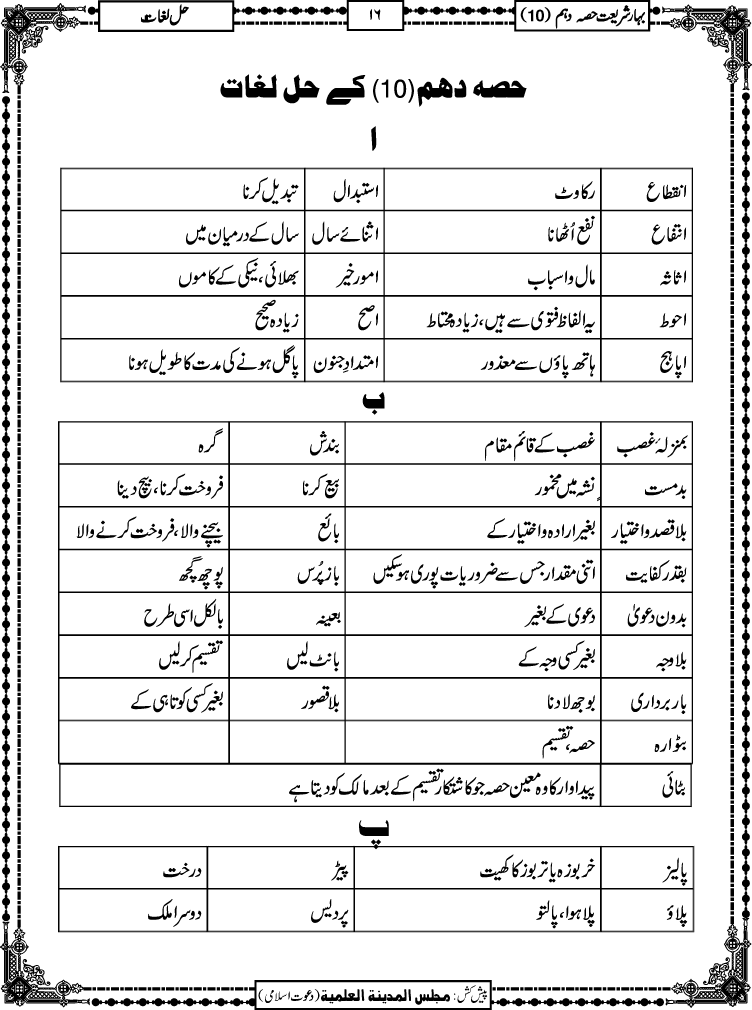 بہارِ شریعت حصہ دہم (10)
۱۶
حل لغات
حصہ دھم(10) کے حل لغات
ا
انقطاع رکاوٹ استبدال تبدیل کرنا
انتفاع نفع اُٹھانا اثنائے سال سال کے درمیان میں
اثاثہ مال و اسباب امور خیر بھلائی، نیکی کے کاموں
احوط یہ الفاظ فتویٰ سے ہیں، زیادہ محتاط اصح زیادہ صحیح
اپاہج ہاتھ پاؤں سے معذور امتدادِ جنون پاگل ہونے کی مدت کا طویل ہونا
ب
بمنزلۂ غصب غصب کے قائم مقام بندش گرہ
بدمست نشہ میں مخمور بیع کرنا فروخت کرنا، بیچ دینا
بلا قصد و اختیار بغیر ارادہ و اختیار کے بائع بیچنے والا، فروخت کرنے والا
بقدر کفایت اتنی مقدار جس سے ضروریات پوری ہو سکیں باز پُرس پوچھ گچھ
بدون دعویٰ دعویٰ کے بغیر بعینہ بالکل اسی طرح
بلا وجہ بغیر کسی وجہ کے بانٹ لیں تقسیم کر لیں
بار برداری بوجھ لادنا بلا قصور بغیر کسی کوتاہی کے
بٹوارہ حصہ، تقسیم
بٹائی پیداوار کا وہ معین حصہ جو کاشتکار تقسیم کے بعد مالک کو دیتا ہے
پ
پالیز خربوزہ یا تربوز کا کھیت پیڑ درخت
پلاؤ پلا ہوا، پالتو پردیس دوسرا ملک
پیش کش: مجلس المدینۃ العلمیۃ (دعوت اسلامی)